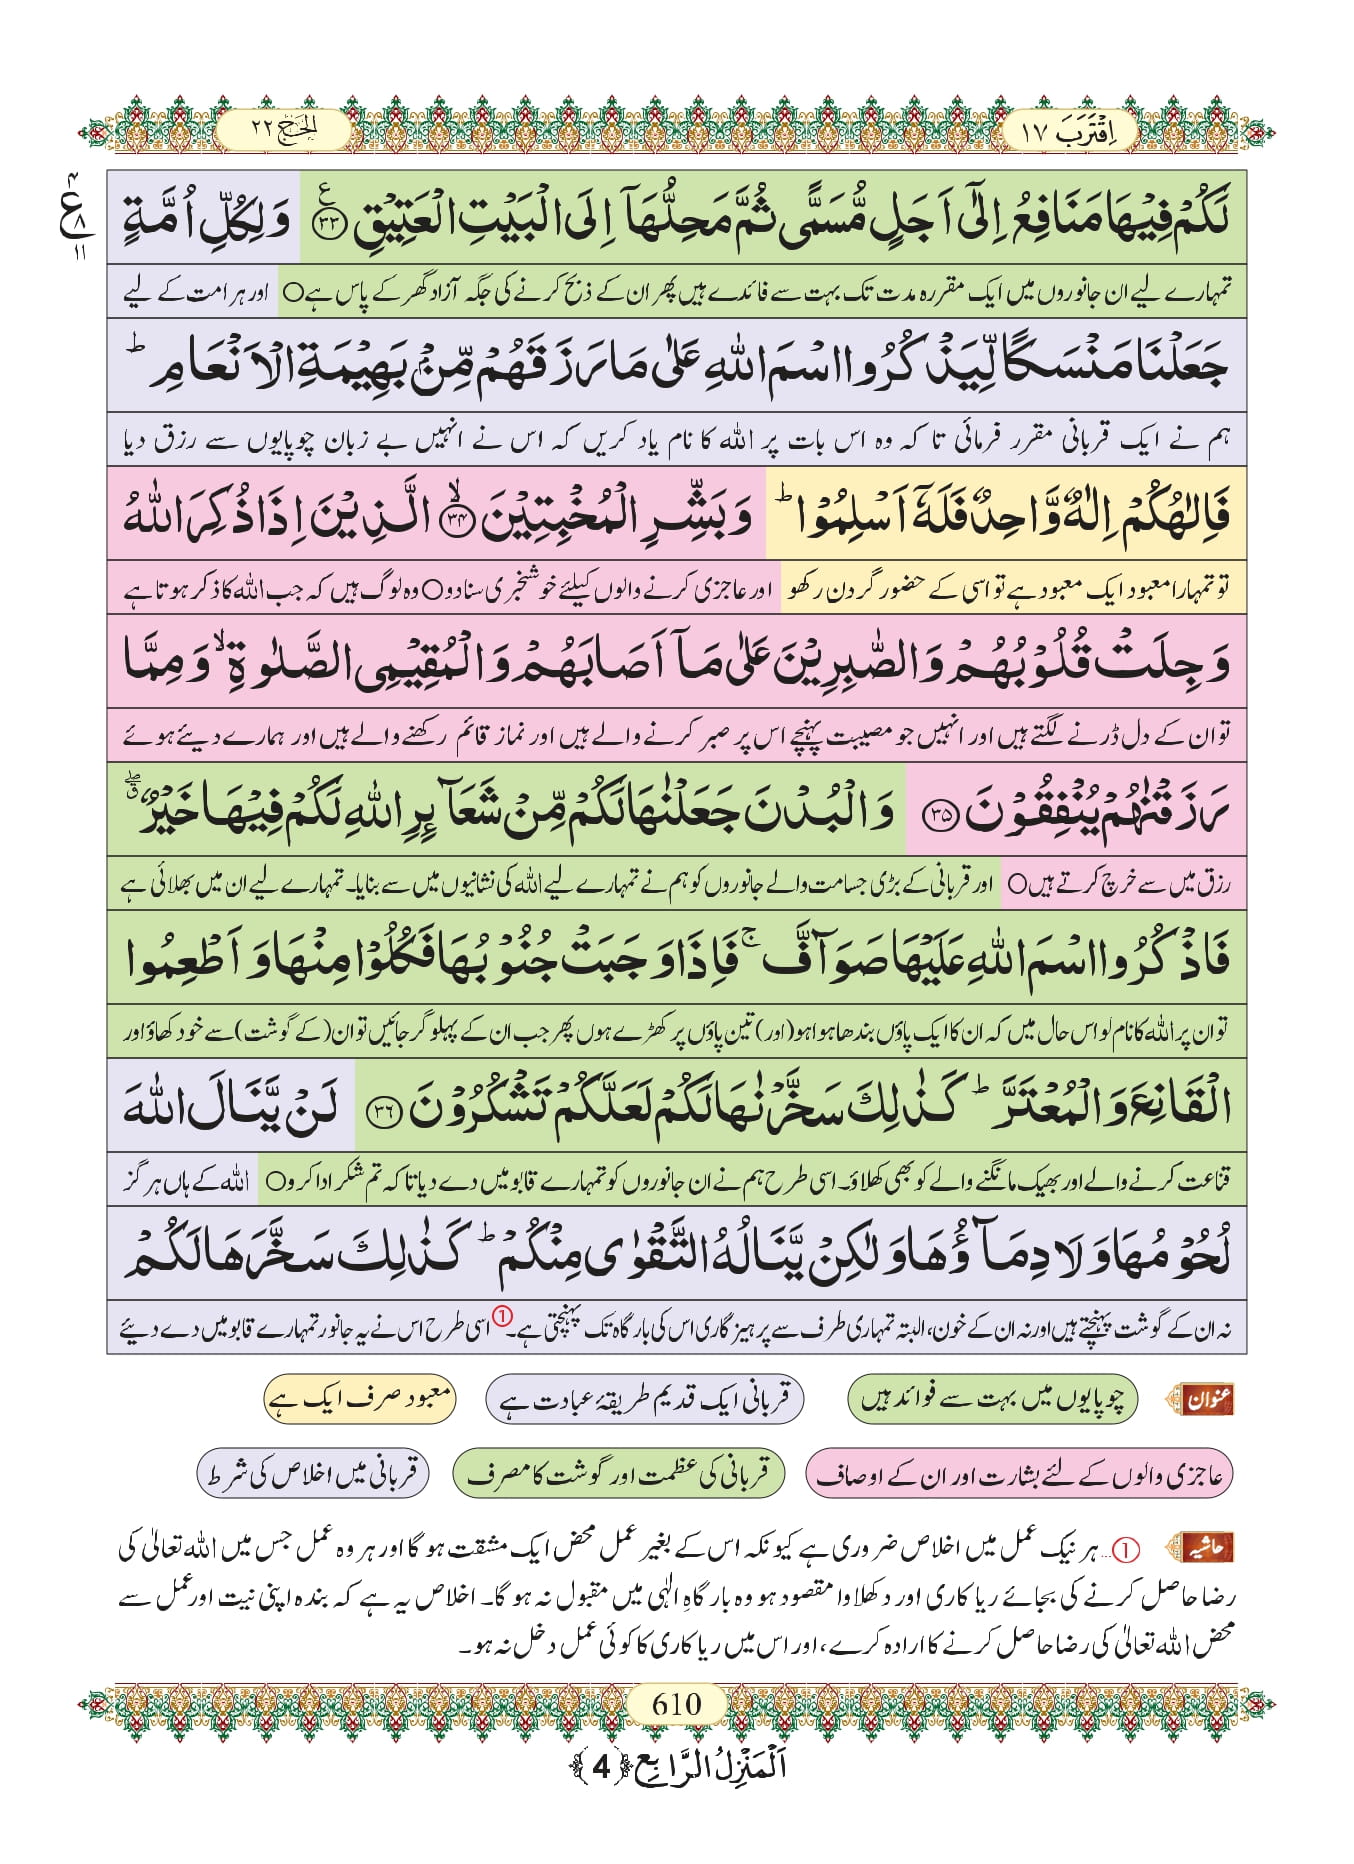 اِقْتَرَبَ ١٧
اَلْحَجّ ٢٢
لَكُمْ فِیْهَا مَنَافِعُ اِلٰۤى اَجَلٍ مُّسَمًّى ثُمَّ مَحِلُّهَاۤ اِلَى الْبَیْتِ الْعَتِیْقِ ﴿۳۳﴾ ع وَ لِكُلِّ اُمَّةٍ
ع ۴ ۸ ۱۱
تمہارے لیے ان جانوروں میں ایک مقررہ مدت تک بہت سے فائدے ہیں پھر ان کے ذبح کرنے کی جگہ آزاد گھر کے پاس ہے○ اور ہر امت کے لیے
جَعَلْنَا مَنْسَكًا لِّیَذْكُرُوا اسْمَ اللّٰهِ عَلٰى مَا رَزَقَهُمْ مِّنْۢ بَهِیْمَةِ الْاَنْعَامِ ؕ
ہم نے ایک قربانی مقرر فرمائی تا کہ وہ اس بات پر اللہ کا نام یاد کریں کہ اس نے انہیں بے زبان چوپایوں سے رزق دیا
فَاِلٰهُكُمْ اِلٰهٌ وَّاحِدٌ فَلَهٗۤ اَسْلِمُوْا ؕ وَ بَشِّرِ الْمُخْبِتِیْنَ ﴿۳۴﴾ۙ الَّذِیْنَ اِذَا ذُكِرَ اللّٰهُ
تو تمہارا معبود ایک معبود ہے تو اسی کے حضور گردن رکھو اور عاجزی کرنے والوں کیلئے خوشخبری سنا دو○ وہ لوگ ہیں کہ جب اللہ کا ذکر ہوتا ہے
وَ جِلَتْ قُلُوْبُهُمْ وَ الصّٰبِرِیْنَ عَلٰى مَاۤ اَصَابَهُمْ وَ الْمُقِیْمِی الصَّلٰوةِ ۙ وَ مِمَّا
تو ان کے دل ڈرنے لگتے ہیں اور انہیں جو مصیبت پہنچے اس پر صبر کرنے والے ہیں اور نماز قائم رکھنے والے ہیں اور ہمارے دیئے ہوئے
رَزَقْنٰهُمْ یُنْفِقُوْنَ ﴿۳۵﴾ وَ الْبُدْنَ جَعَلْنٰهَا لَكُمْ مِّنْ شَعَآىٕرِ اللّٰهِ لَكُمْ فِیْهَا خَیْرٌ ۖۗ
رزق میں سے خرچ کرتے ہیں○ اور قربانی کے بڑی جسامت والے جانوروں کو ہم نے تمہارے لیے اللہ کی نشانیوں میں سے بنایا۔ تمہارے لیے ان میں بھلائی ہے
فَاذْكُرُوا اسْمَ اللّٰهِ عَلَیْهَا صَوَآفَّ ۚ فَاِذَا وَجَبَتْ جُنُوْبُهَا فَكُلُوْا مِنْهَا وَ اَطْعِمُوا
تو ان پر اللہ کا نام لو اس حال میں کہ ان کا ایک پاؤں بندھا ہوا ہو (اور) تین پاؤں پر کھڑے ہوں پھر جب ان کے پہلو گر جائیں تو ان (کے گوشت) سے خود کھاؤ اور
الْقَانِعَ وَ الْمُعْتَرَّ ؕ كَذٰلِكَ سَخَّرْنٰهَا لَكُمْ لَعَلَّكُمْ تَشْكُرُوْنَ ﴿۳۶﴾ لَنْ یَّنَالَ اللّٰهَ
قناعت کرنے والے اور بھیک مانگنے والے کو بھی کھلاؤ۔ اسی طرح ہم نے ان جانوروں کو تمہارے قابو میں دے دیا تا کہ تم شکر ادا کرو○ اللہ کے ہاں ہر گز
لُحُوْمُهَا وَ لَا دِمَآؤُهَا وَ لٰكِنْ یَّنَالُهُ التَّقْوٰى مِنْكُمْ ؕ كَذٰلِكَ سَخَّرَهَا لَكُمْ
نہ ان کے گوشت پہنچتے ہیں اور نہ ان کے خون، البتہ تمہاری طرف سے پرہیز گاری اس کی بارگاہ تک پہنچتی ہے۔① اسی طرح اس نے یہ جانور تمہارے قابو میں دے دیئے
عنوان چوپایوں میں بہت سے فوائد ہیں قربانی ایک قدیم طریقۂ عبادت ہے معبود صرف ایک ہے
عاجزی والوں کے لئے بشارت اور ان کے اوصاف قربانی کی عظمت اور گوشت کا مصرف قربانی میں اخلاص کی شرط
حاشیہ ①... ہر نیک عمل میں اخلاص ضروری ہے کیونکہ اس کے بغیر عمل محض ایک مشقت ہو گا اور ہر وہ عمل جس میں اللہ تعالیٰ کی
رضا حاصل کرنے کی بجائے ریا کاری اور دکھلاوا مقصود ہو وہ بارگاہِ الٰہی میں مقبول نہ ہو گا۔ اخلاص یہ ہے کہ بندہ اپنی نیت اور عمل سے
محض اللہ تعالیٰ کی رضا حاصل کرنے کا ارادہ کرے، اور اس میں ریا کاری کا کوئی عمل دخل نہ ہو۔
610
اَلْمَنْزِلُ الرَّابِع ﴿4﴾